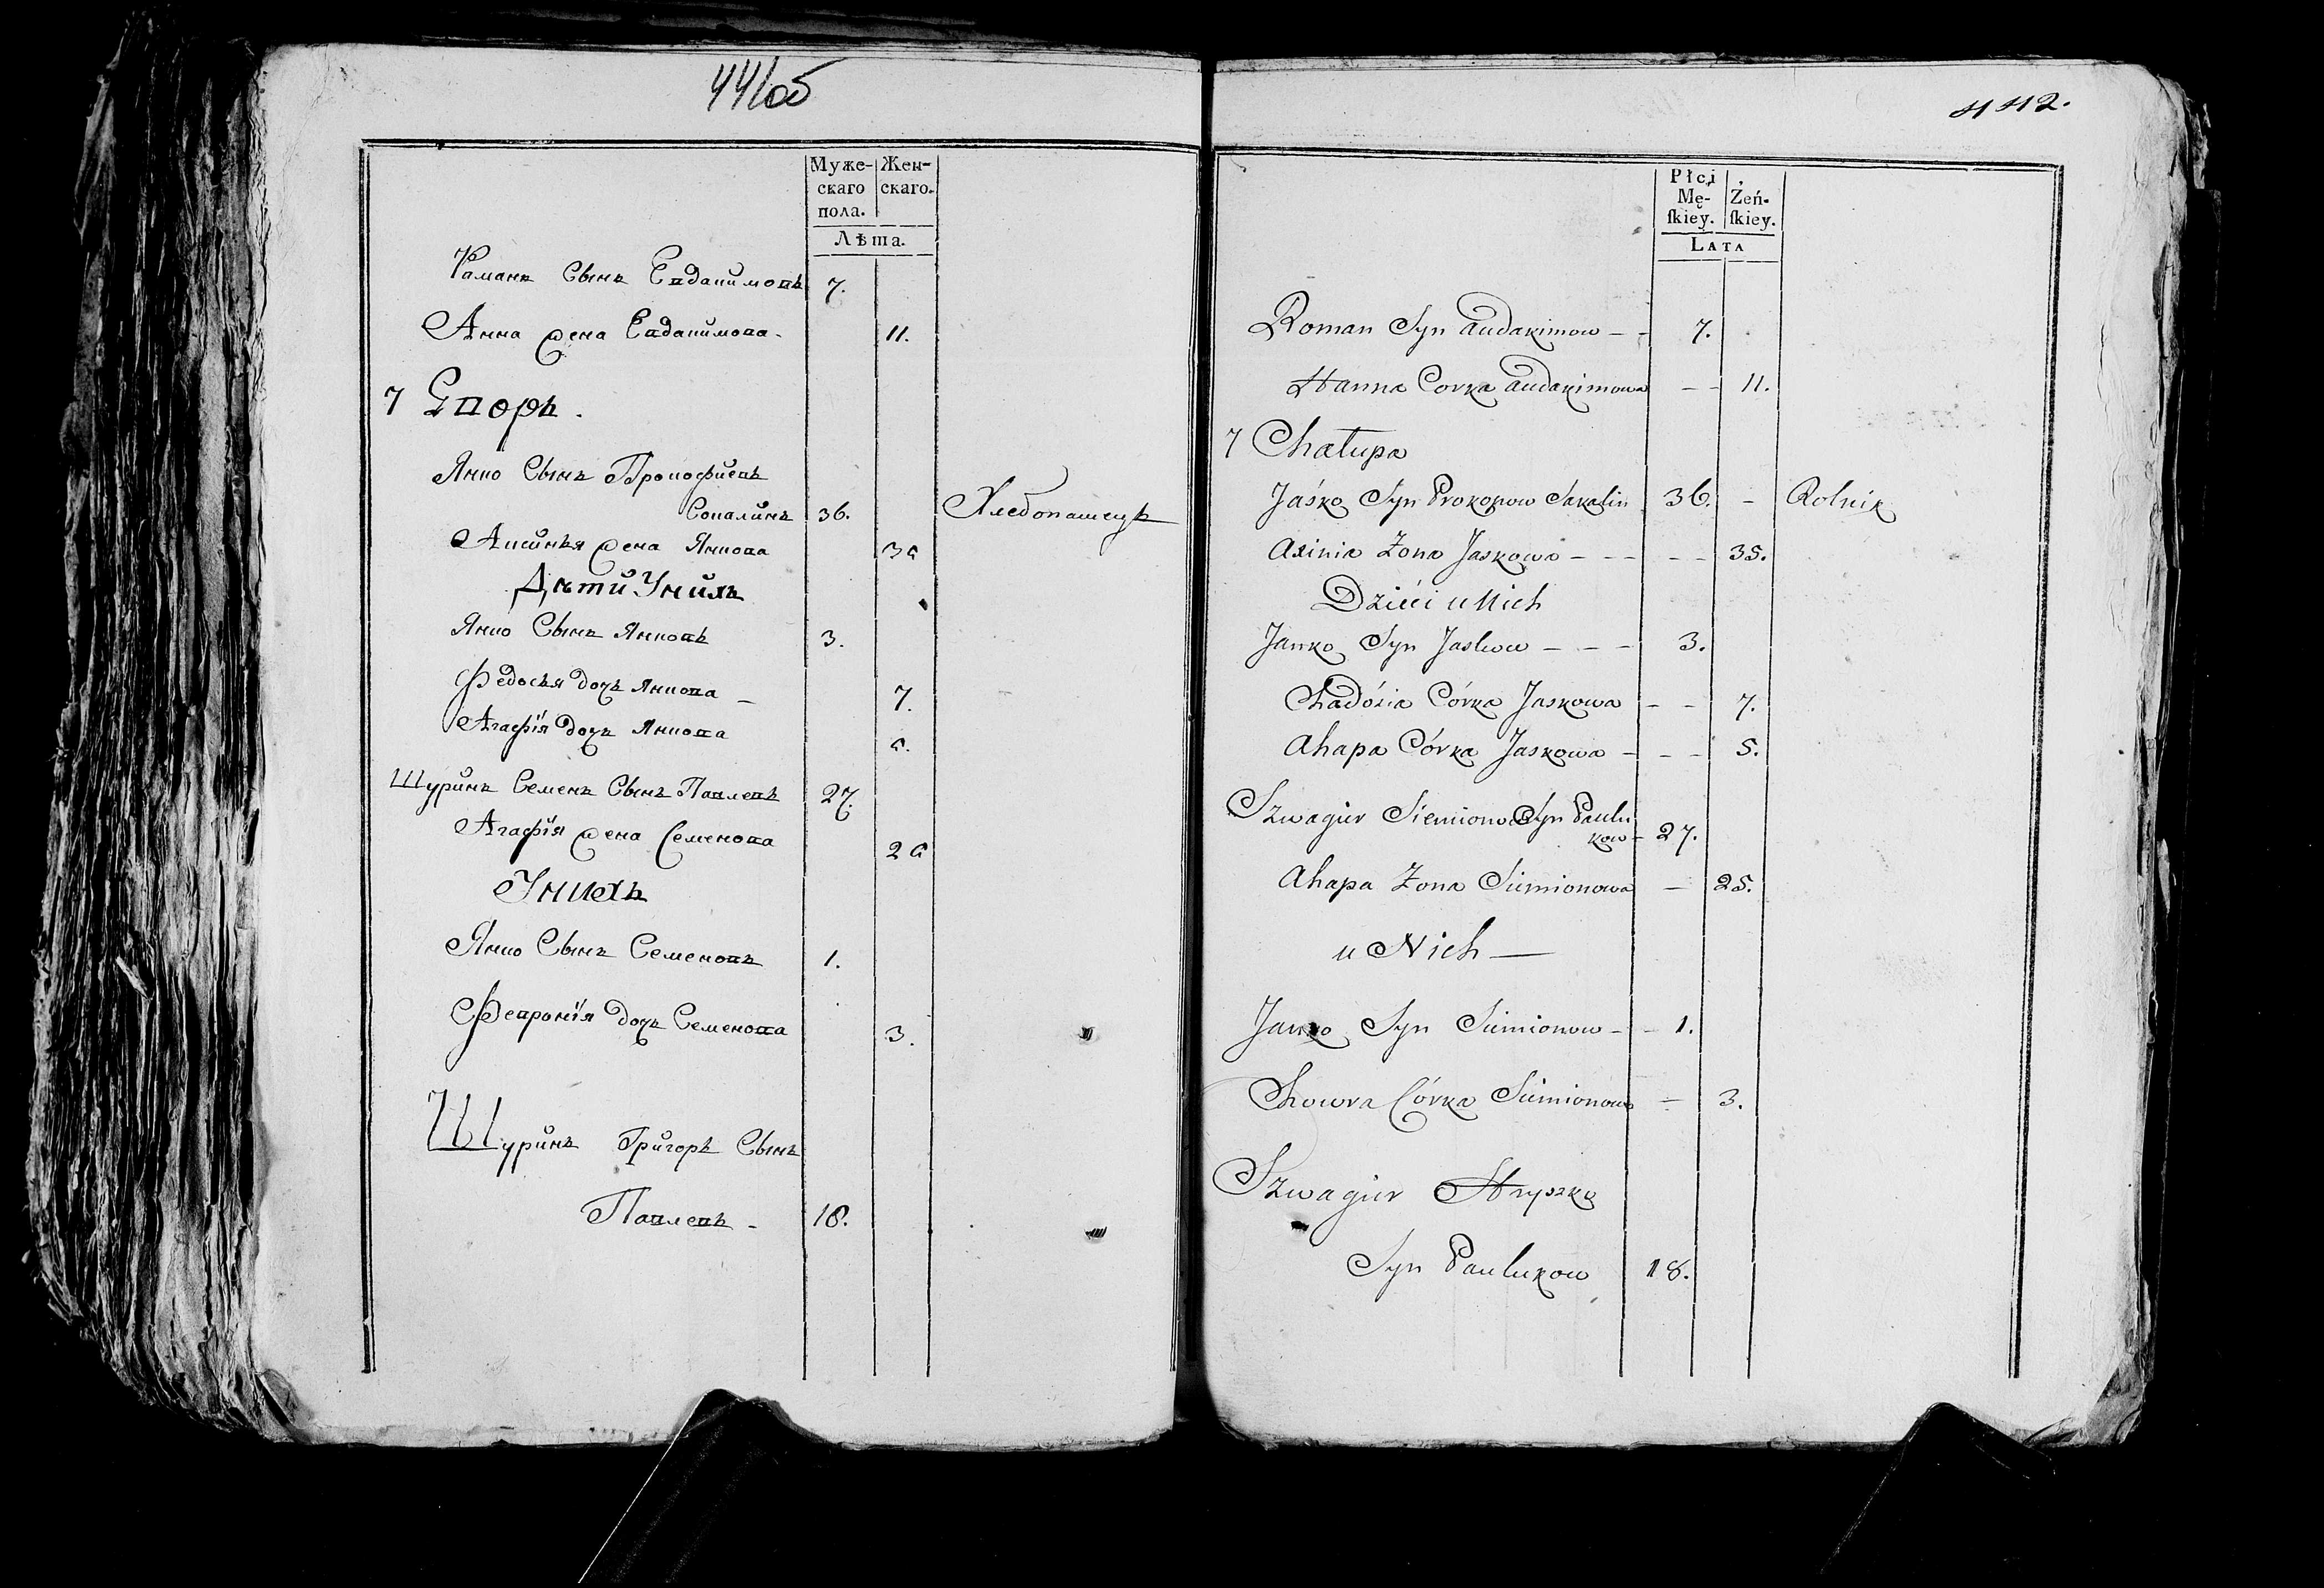 44/об
Муже-
скаго
пола.
Жен-
скаго.
Лѣта.
Раманъ Сынъ Евдакимовъ 7.
Анна жена Евдакимова - 11.
7 Дворъ.
Янко Сынъ Прокофиевъ
Сокалинъ 36. Хлебопашецъ
Аксинья жена Янкова 35
Дѣти Унихъ
Янко Сынъ Янковъ 3.
Федосья дочь Янкова - 7.
Агафїя дочь Янкова 5.
Шуринъ Семенъ Сынъ Павлевъ 27.
Агафїя жена Семенова 25
Унихъ
Янко Сынъ Семеновъ 1.
Февронїя дочь Семенова 3.
Шуринъ Григоръ Сынъ
Павлевъ - 18.
442.
Płci
Mę-
ſkiey.
Żeń-
ſkiey.
LATA
Roman Syn Audakimow - - 7.
Hanna Corka Audakimowa - - 11.
7 Chałupa
Jaśko Syn Prokopow Sakalin 36. - Rolnik
Axinia Zona Jaskowa - - - - - 35.
Dzieci u Nich
Janko Syn Jaskow - - - 3.
Chadósia Córka Jaskowa - - 7.
Ahapa Córka Jaskowa - - - 5.
Szwagier Siemion Syn Paulu
kow - 27.
Ahapa Zona Siemionowa - 25.
u Nich —
Janko Syn Siemionow - - 1.
Chowra Córka Siemionowa - 3.
Szwagier Hryszko
Syn Paulukow 18.